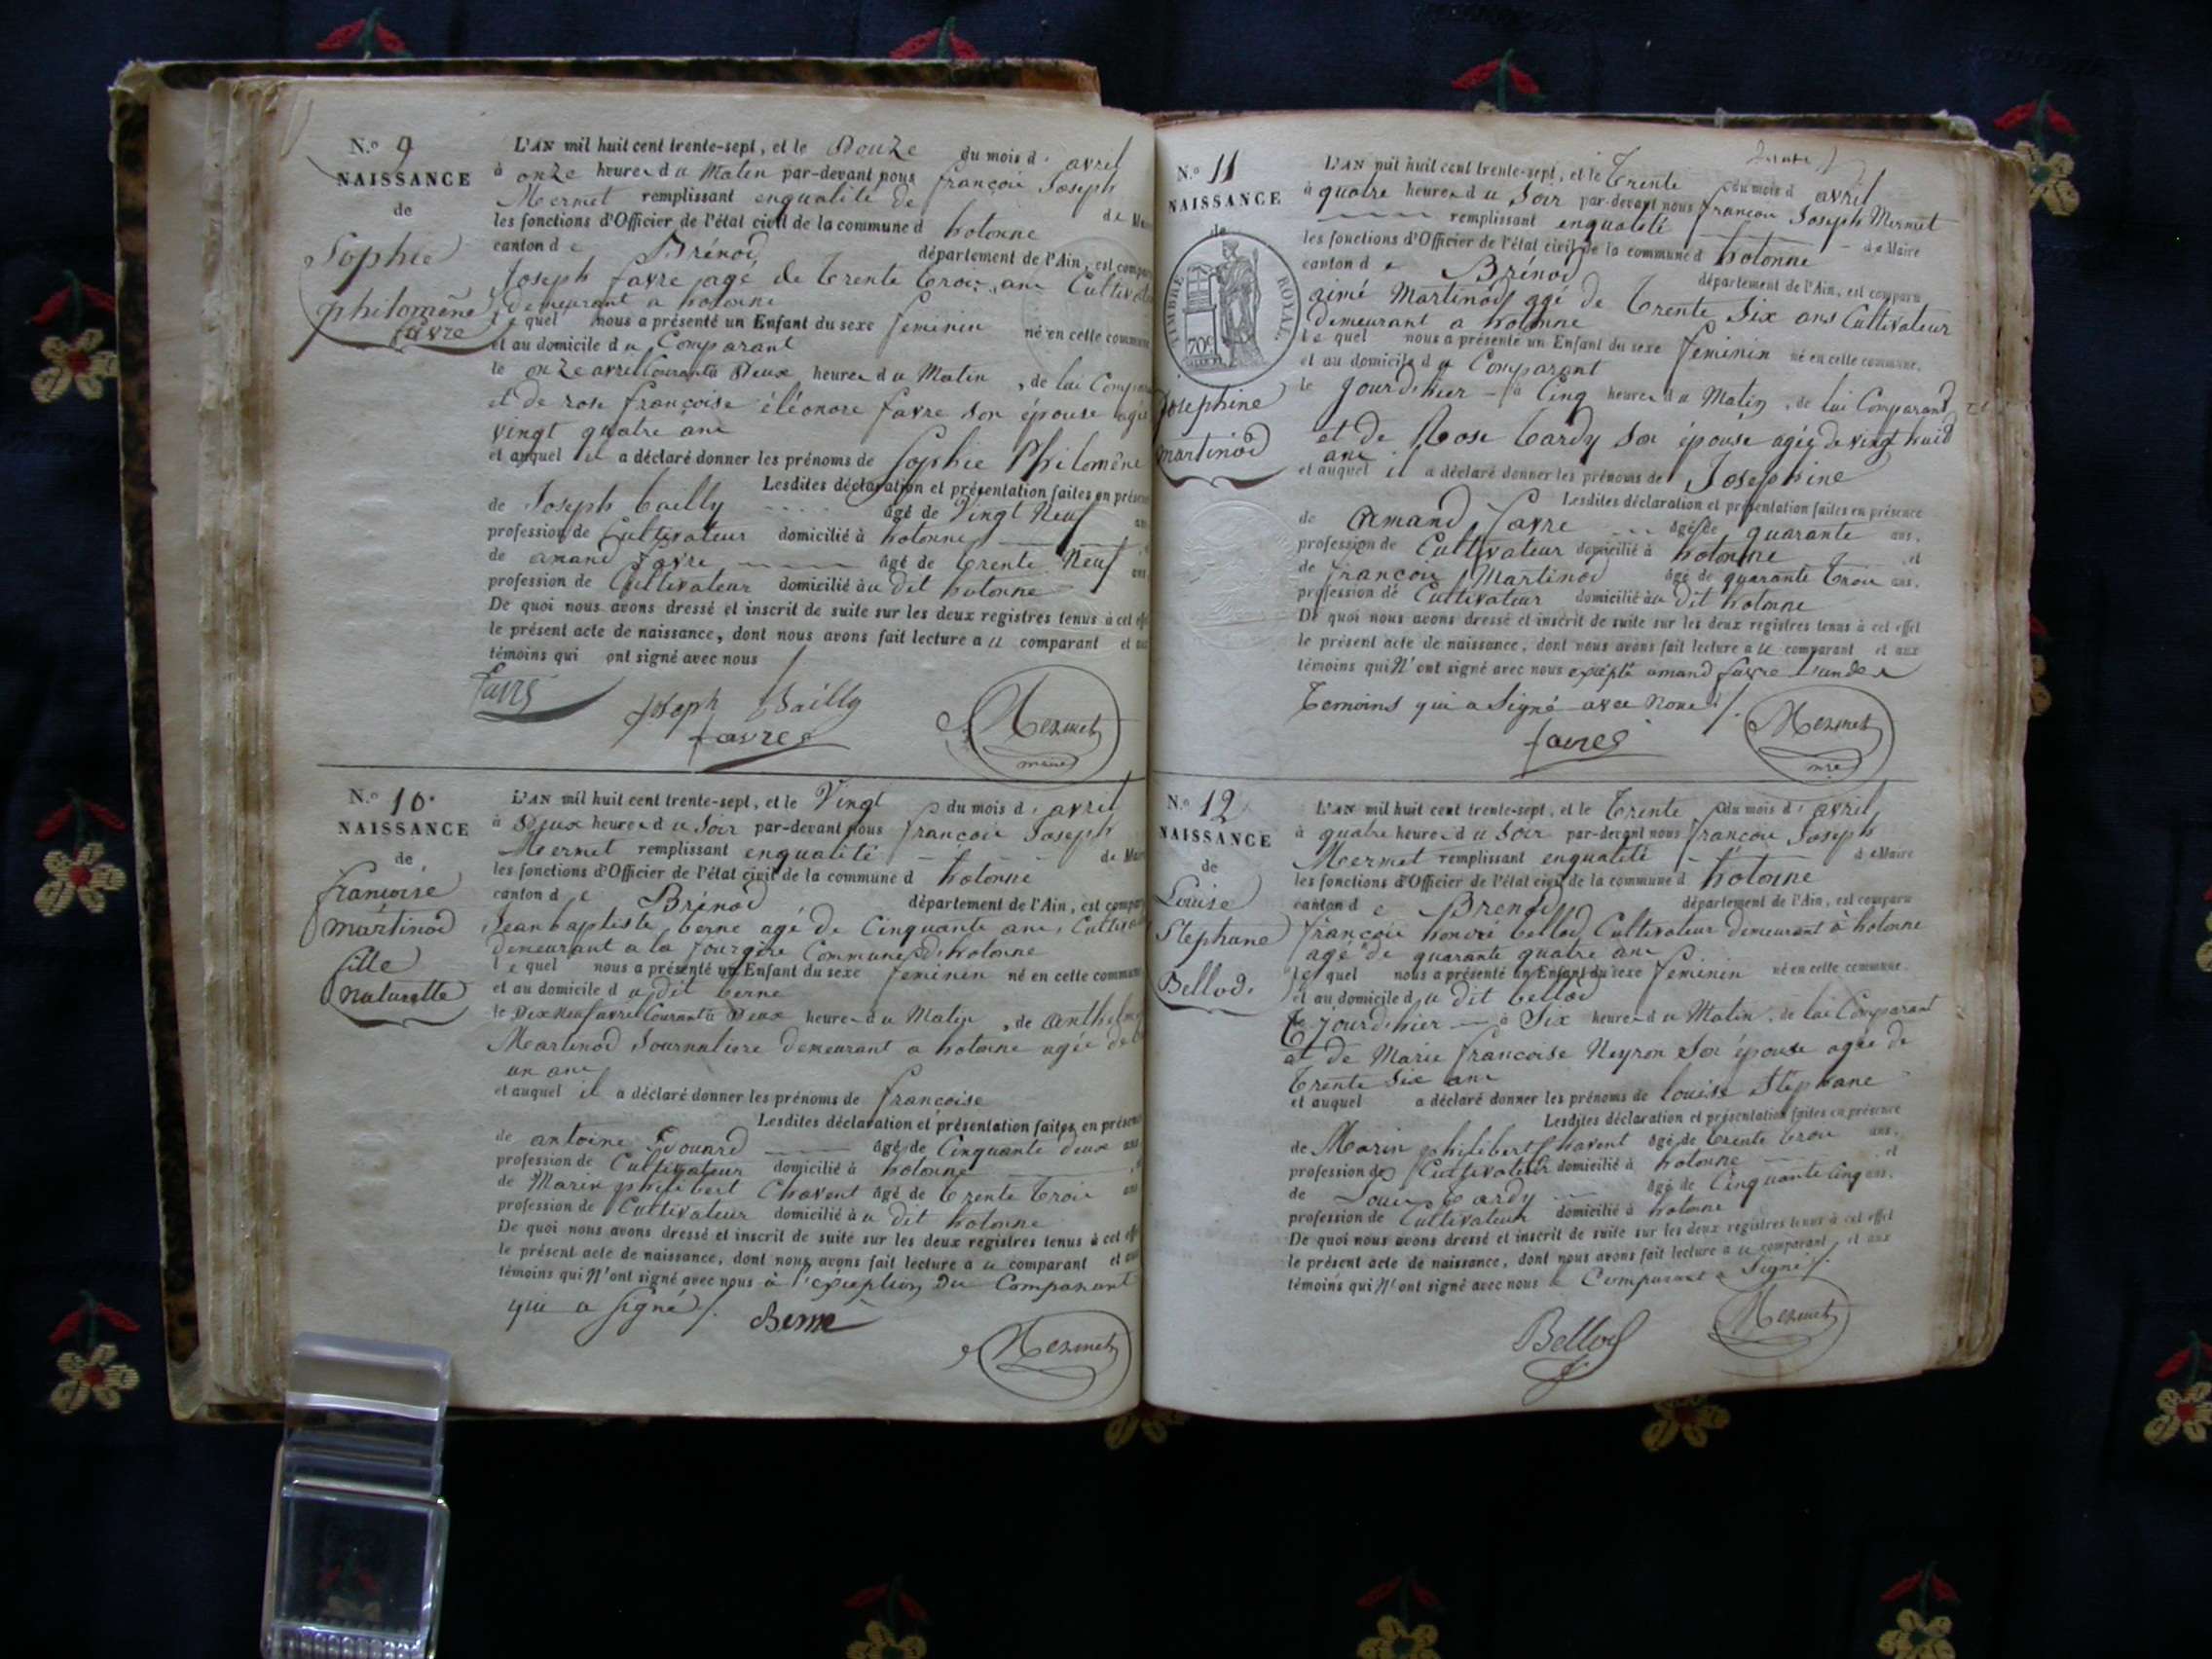 N.o 9
NAISSANCE
de
Sophie
philomène
favre
L'AN mil huit cent trente-sept, et le Douze du mois d' avril
à onze heures du Matin par-devant nous françois Joseph
Mermet remplissant enqualité de de
les fonctions d'Officier de l'état civil de la commune d hotonne
canton de Brénod département de l'Ain, est
Joseph favre agé de trente trois ans
demeurant a hotonne
lequel nous a présenté un Enfant du sexe feminin né en cette
et au domicile du Comparant
le onze avril Courant à Deux heures du Matin, de lui
et de rose françoise éléonore favre son épouse
vingt quatre ans
et auquel il a déclaré donner les prénoms de Sophie Philomène
Lesdites déclaration et présentation faites en
de Joseph bailly âgé de Vingt Neuf
profession de Cultivateur domicilié à hotonne
de amand favre âgé de trente Neuf ans
profession de Cultivateur domicilié au dit hotonne
De quoi nous avons dressé et inscrit de suite sur les deux registres tenus à cet
le présent acte de naissance, dont nous avons fait lecture au comparant et
témoins qui ont signé avec nous
favre
Joseph Bailly
favre
Mermet
maire
N.o 10
NAISSANCE
de
françoise
martinod
fille
naturelle
L'AN mil huit cent trente-sept, et le Vingt du mois d' avril
à Deux heures du Soir par-devant nous françois Joseph
Mermet remplissant enqualité de
les fonctions d'Officier de l'état civil de la commune d hotonne
canton de Brénod département de l'Ain, est
Jean baptiste berne agé de Cinquante ans,
demeurant a la fourgère Commune d'hotonne
lequel nous a présenté un Enfant du sexe feminin né en cette
et au domicile du dit berne
le Dix Neuf avril Courant à Deux heures du Matin, de
Martinod Journaliere demeurant a hotonne agée de
un ans
et auquel il a déclaré donner les prénoms de françoise
Lesdites déclaration et présentation faites en
de antoine Edouard âgé de Cinquante deux
profession de Cultivateur domicilié à hotonne
de Marin philibert Chavent âgé de trente trois
profession de Cultivateur domicilié au dit hotonne
De quoi nous avons dressé et inscrit de suite sur les deux registres tenus à cet
le présent acte de naissance, dont nous avons fait lecture au comparant et
témoins qui N'ont signé avec nous à l'exception du Comparant
qui a signé
Berne
Mermet
N.o 11
NAISSANCE
de
TIMBRE ROYAL
70c
Josephine
martinod
L'AN mil huit cent trente-sept, et le trente du mois d avril
à quatre heures du Soir par-devant nous françois Joseph Mermet
remplissant enqualité de Maire
les fonctions d'Officier de l'état civil de la commune d hotonne
canton de Brénod département de l'Ain, est comparu
aimé Martinod agé de trente Six ans Cultivateur
demeurant a hotonne
lequel nous a présenté un Enfant du sexe feminin né en cette commune,
et au domicile du Comparant
le jourd'hier à Cinq heures du Matin, de lui Comparant
et de Rose tardy son épouse agée de vingt huid
ans
et auquel il a déclaré donner les prénoms de Josephine
Lesdites déclaration et présentation faites en présence
de amand favre âgé de quarante ans,
profession de Cultivateur domicilié à hotonne et
de françois Martinod âgé de quarante trois ans,
profession de Cultivateur domicilié au dit hotonne
De quoi nous avons dressé et inscrit de suite sur les deux registres tenus à cet effet
le présent acte de naissance, dont nous avons fait lecture au comparant et aux
témoins qui N'ont signé avec nous excépté amand favre l'un des
temoins qui a Signé avec nous
favre
Mermet
mre
N.o 12
NAISSANCE
de
Louise
Stephane
Bellod.
L'AN mil huit cent trente-sept, et le trente du mois d' avril
à quatre heures du Soir par-devant nous françois Joseph
Mermet remplissant enqualité de Maire
les fonctions d'Officier de l'état civil de la commune d hotonne
canton de Brenod département de l'Ain, est comparu
françois honoré bellod Cultivateur demeurant à hotonne
agé de quarante quatre ans
lequel nous a présenté un Enfant du sexe feminin né en cette commune
et au domicile du dit bellod
le jourd'hier à Six heures du Matin, de lui Comparant
et de Marie francoise Neyron son épouse agée de
trente Six ans
et auquel a déclaré donner les prénoms de louise Stéphane
Lesdites déclaration et présentation faites en présence
de Marin philibert Chavent âgé de trente trois ans,
profession de Cultivateur domicilié à hotonne et
de Louis tardy âgé de Cinquante Cinq ans,
profession de Cultivateur domicilié à hotonne
De quoi nous avons dressé et inscrit de suite sur les deux registres tenus à cet effet
le présent acte de naissance, dont nous avons fait lecture au comparant et aux
témoins qui N'ont signé avec nous le Comparant a Signé
Bellod
Mermet